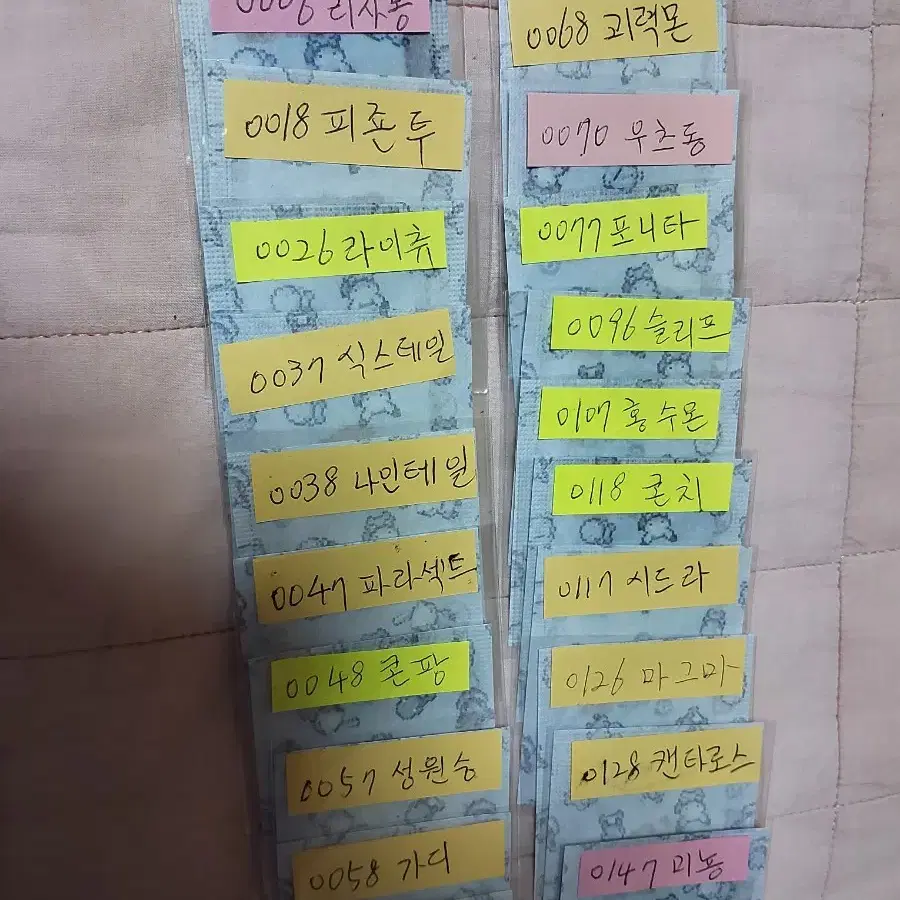 0006 리자몽
0018 피죤투
0026 라이츄
0037 식스테일
0038 나인테일
0047 파라섹트
0048 콘팡
0057 성원숭
0058 가디
0068 괴력몬
0070 우츠동
0077 포니타
0096 슬리프
0107 홍수몬
0118 콘치
0117 시드라
0126 마그마
0128 캔타로스
0147 미뇽